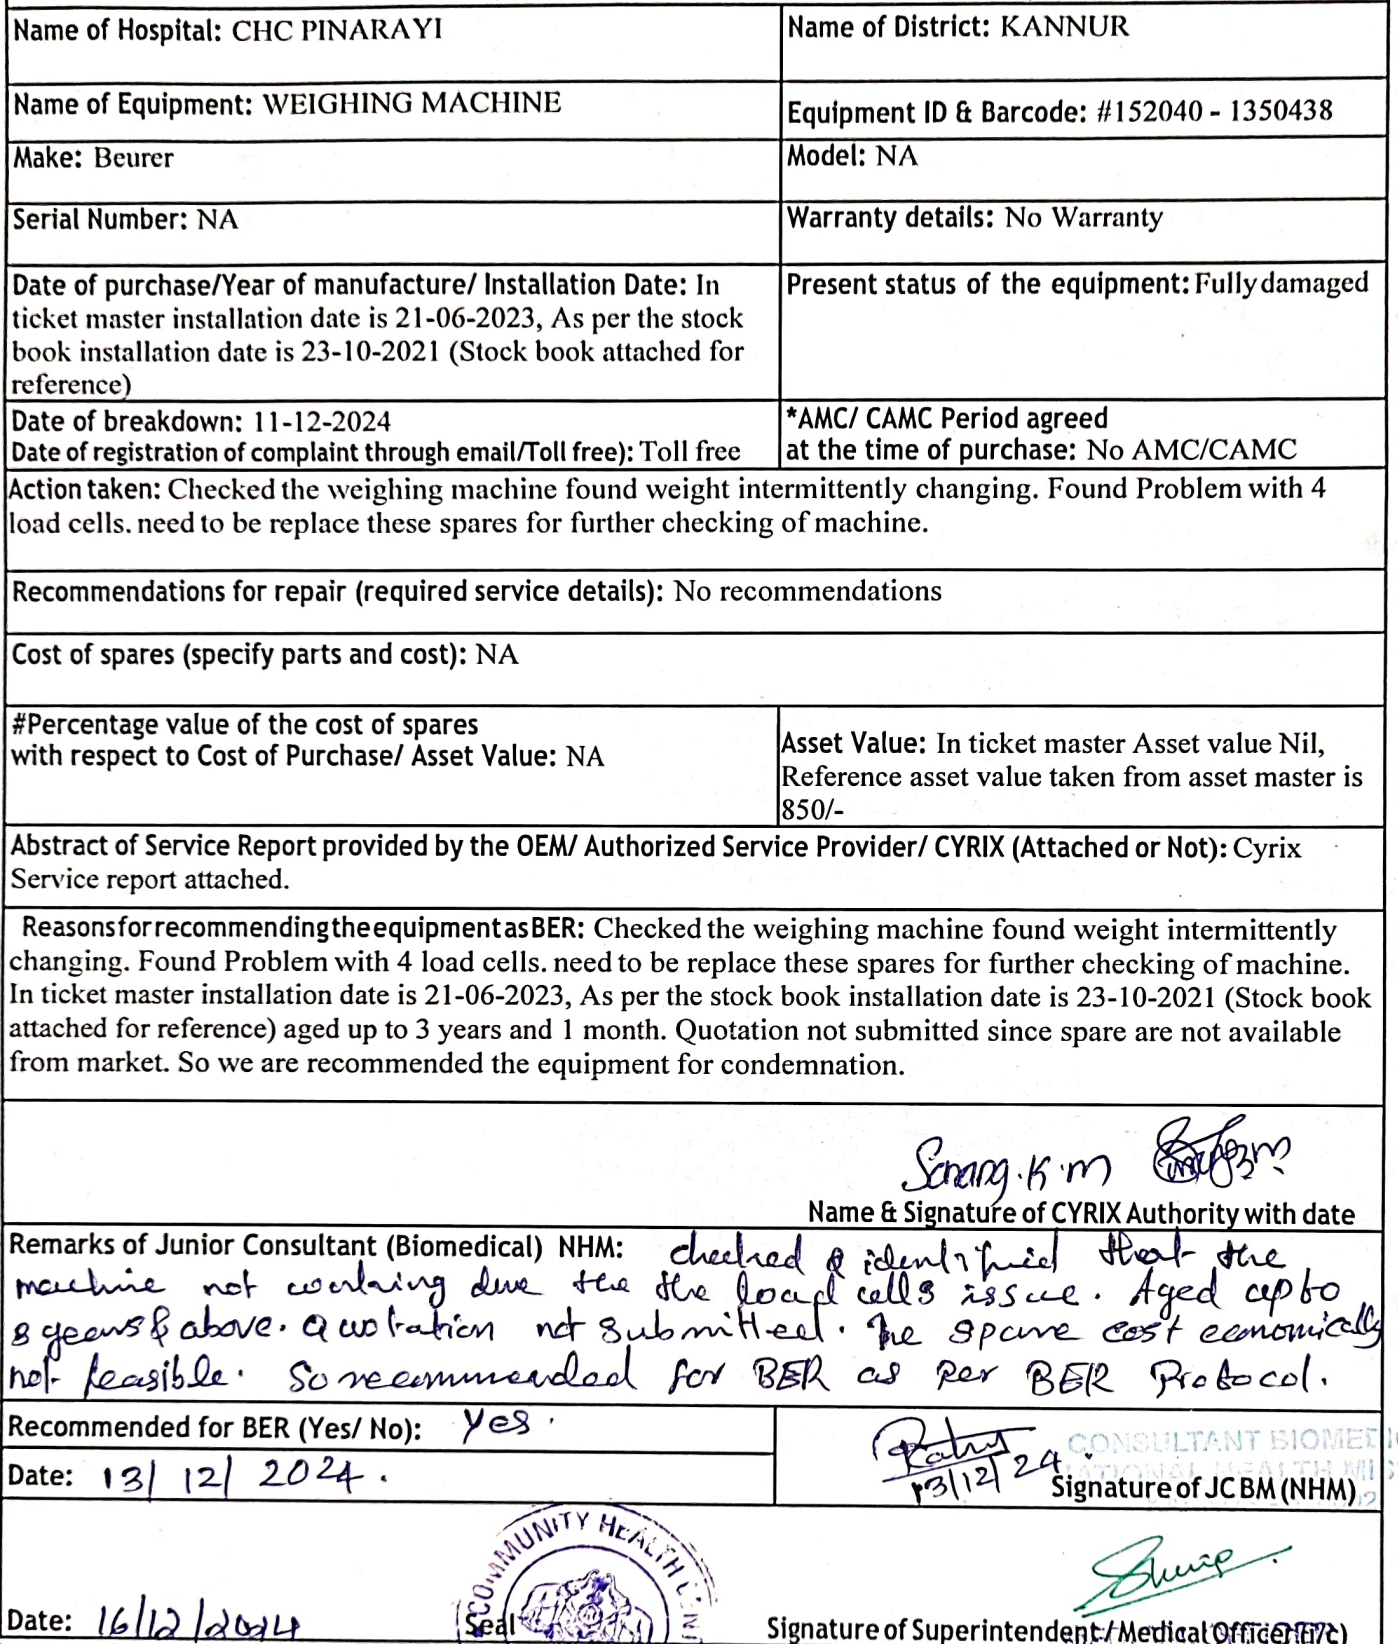 Name of Hospital: CHC PINARAYI
Name of District: KANNUR
Name of Equipment: WEIGHING MACHINE
Equipment ID & Barcode: #152040 - 1350438
Make: Beurer
Model: NA
Serial Number: NA
Warranty details: No Warranty
Date of purchase/Year of manufacture/ Installation Date: In
ticket master installation date is 21-06-2023, As per the stock
book installation date is 23-10-2021 (Stock book attached for
reference)
Present status of the equipment: Fully damaged
Date of breakdown: 11-12-2024
Date of registration of complaint through email/Toll free): Toll free
*AMC/ CAMC Period agreed
at the time of purchase: No AMC/CAMC
Action taken: Checked the weighing machine found weight intermittently changing. Found Problem with 4
load cells. need to be replace these spares for further checking of machine.
Recommendations for repair (required service details): No recommendations
Cost of spares (specify parts and cost): NA
#Percentage value of the cost of spares
with respect to Cost of Purchase/ Asset Value: NA
Asset Value: In ticket master Asset value Nil,
Reference asset value taken from asset master is
850/-
Abstract of Service Report provided by the OEM/ Authorized Service Provider/ CYRIX (Attached or Not): Cyrix
Service report attached.
Reasons for recommending the equipment as BER: Checked the weighing machine found weight intermittently
changing. Found Problem with 4 load cells. need to be replace these spares for further checking of machine.
In ticket master installation date is 21-06-2023, As per the stock book installation date is 23-10-2021 (Stock book
attached for reference) aged up to 3 years and 1 month. Quotation not submitted since spare are not available
from market. So we are recommended the equipment for condemnation.
K.m
Name & Signature of CYRIX Authority with date
Remarks of Junior Consultant (Biomedical) NHM: checked & identified that the
machine not working due the the load cells issue. Aged upto
years & above. Quotation not submitted. The spare cost economically
not feasible. So recommended for BER as per BER Protocol.
Recommended for BER (Yes/ No): Yes.
Date: 13/12/2024.
13/12/24.
CONSULTANT BIOMEDI
NATIONAL HEALTH MIS
Signature of JC BM (NHM)
COMMUNITY HEALTH CEN
Date: 16/12/2024
Seal
Signature of Superintendent/ Medical Officer(I/c)